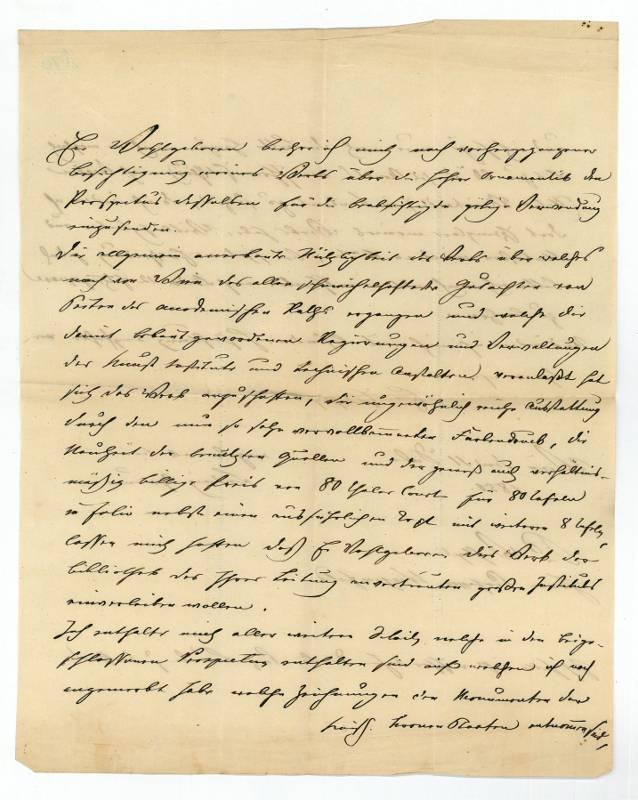 Ew Wohlgeboren beehre ich mich nach vorhergegangener
Besichtigung meines Werks über die höhere Ornamentik den
Prospectus desselben für die beabsichtigte gütige Verwendung
einzusenden.
Die allgemein anerkannte Nützlichkeit des Werks über welches
auch von Wien das aller schmeichelhafteste Gutachten von
Seiten des academischen Raths ergangen und welche die
damit bekanntgewordenen Regierungen und Verwaltungen
der Kunst Institute und technischen Anstalten veranlaßt hat
sich das Werk anzuschaffen, die ungewöhnlich reiche Ausstattung
durch den nun so sehr vervollkommneten Farbendruck, die
Neuheit der benützten Quellen und der gewiß auch verhältniß-
mäßig billige Preis von 80 Thaler Court für 80 Tafeln
in Folio nebst einem ausführlichen Text mit weiteren 8 Tafeln,
lassen mich hoffen daß Ew Wohlgeboren dies Werk der
Bibliothek des Ihrer Leitung anvertrauten großen Instituts
einverleiben wollen.
Ich enthalte mich aller weitern welche in den beige-
schlossenen Prospectus enthalten sind auf welchen ich noch
angemerkt habe welche Zeichnungen den Monumenten der
Kronen Staaten entnommen sind,